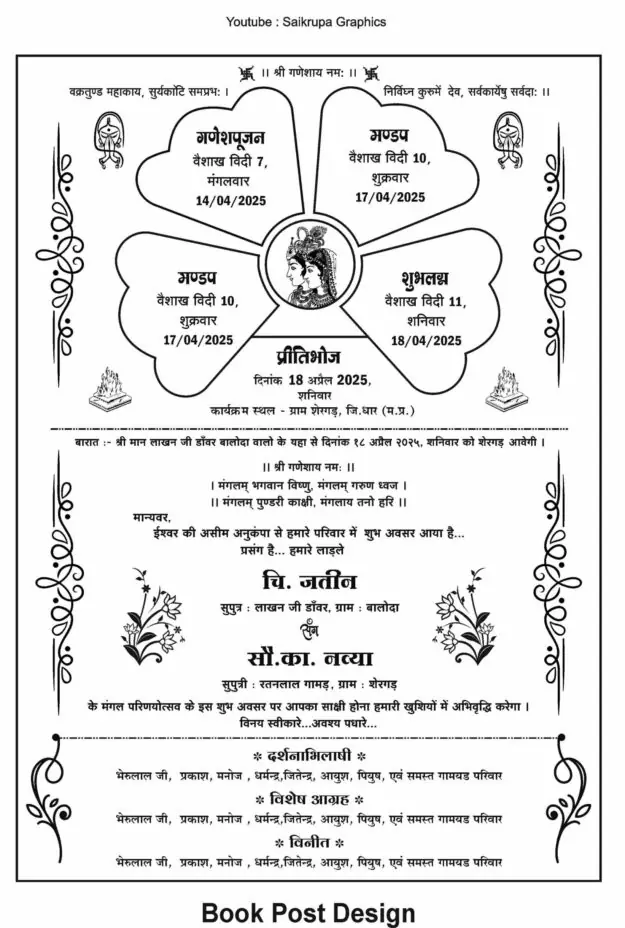 Youtube : Saikrupa Graphics
।। श्री गणेशाय नम: ।।
वक्रतुण्ड महाकाय, सुर्यकोटि समप्रभ: ।
निर्विघ्न कुरुमें देव, सर्वकार्येषु सर्वदा: ।।
गणेशपूजन
वैशाख विदी 7,
मंगलवार
14/04/2025
मण्डप
वैशाख विदी 10,
शुक्रवार
17/04/2025
मण्डप
वैशाख विदी 10,
शुक्रवार
17/04/2025
शुभलग्न
वैशाख विदी 11,
शनिवार
18/04/2025
प्रीतिभोज
दिनांक 18 अप्रैल 2025,
शनिवार
कार्यक्रम स्थल - ग्राम शेरगड़, जि.धार (म.प्र.)
बारात :- श्री मान लाखन जी डाँवर बालोदा वालो के यहा से दिनांक १८ अप्रैल २०२५, शनिवार को शेरगड़ आवेगी ।
।। श्री गणेशाय नमः ।।
। मंगलम् भगवान विष्णु, मंगलम् गरुण ध्वज ।
।। मंगलम् पुण्डरी काक्षी, मंगलाय तनो हरि ।।
मान्यवर,
ईश्वर की असीम अनुकंपा से हमारे परिवार में शुभ अवसर आया है...
प्रसंग है... हमारे लाड़ले
चि. जतीन
सुपुत्र : लाखन जी डाँवर, ग्राम : बालोदा
संग
सौ.का. नव्या
सुपुत्री : रतनलाल गामड़, ग्राम : शेरगड़
के मंगल परिणयोत्सव के इस शुभ अवसर पर आपका साक्षी होना हमारी खुशियों में अभिवृद्धि करेगा ।
विनय स्वीकारे...अवश्य पधारे...
* दर्शनाभिलाषी *
भेरुलाल जी, प्रकाश, मनोज , धर्मन्द्र,जितेन्द्र, आयुश, पियुष, एवं समस्त गामयड परिवार
* विशेष आग्रह *
भेरुलाल जी, प्रकाश, मनोज , धर्मन्द्र,जितेन्द्र, आयुश, पियुष, एवं समस्त गामयड परिवार
* विनीत *
भेरुलाल जी, प्रकाश, मनोज , धर्मन्द्र,जितेन्द्र, आयुश, पियुष, एवं समस्त गामयड परिवार
Book Post Design